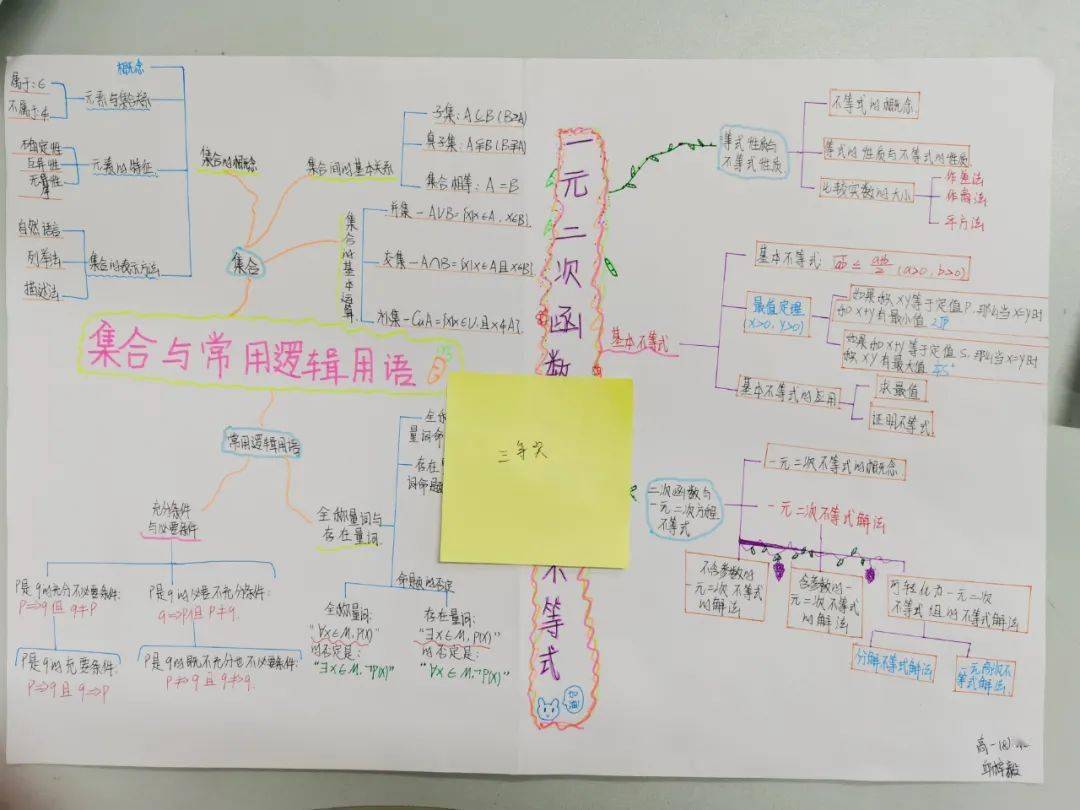 集合与常用逻辑用语
集合
集合的概念
概念
元素与集合关系
属于:∈
不属于:∉
元素的特征
确定性
互异性
无序性
集合的表示方法
自然语言
列举法
描述法
集合间的基本关系
子集:A⊆B(B⊇A)
真子集:A⫋B(B⫌A)
集合相等:A=B
集合的基本运算
并集-A∪B={x|x∈A, X∈B}
交集-A∩B={x|x∈A且X∈B}
补集-CuA={x|x∈U,且x∉A}
常用逻辑用语
充分条件
与必要条件
P是q的充分不必要条件:
P⇒q且q⇏P
P是q的必要不充分条件:
q⇒P且P⇏q
P是q的充要条件:
P⇒q且q⇒P
P是q的既不充分也不必要条件:
P⇏q且q⇏P
全称量词与
存在量词
全称
量词命
存在
词命题
命题的否定
全称量词:
"∀x∈M,P(x)"
的否定是:
"∃x∈M,¬P(x)"
存在量词:
"∃x∈M,P(x)"
的否定是:
"∀x∈M,¬P(x)"
三等奖
一元二次函数
不等式
加油
等式性质与
不等式性质
不等式的概念
等式的性质与不等式的性质
比较实数的大小
作差法
作商法
平方法
基本不等式
基本不等式:√ab≤(a+b)/2 (a>0,b>0)
最值定理
(X>0,Y>0)
如果积XY等于定值P,那么当X=Y时
和X+Y有最小值2√P
如果和X+Y等于定值S,那么当X=Y时
积XY有最大值¼S²
基本不等式的应用
求最值
证明不等式
二次函数与
一元二次方程
不等式
一元二次不等式的概念
一元二次不等式解法
不含参数的一
元二次不等式
的解法
含参数的一
元二次不等式
的解法
可转化为一元二次
不等式组的不等式解法
分解不等式解法
一元高次不
等式解法
高一(8)